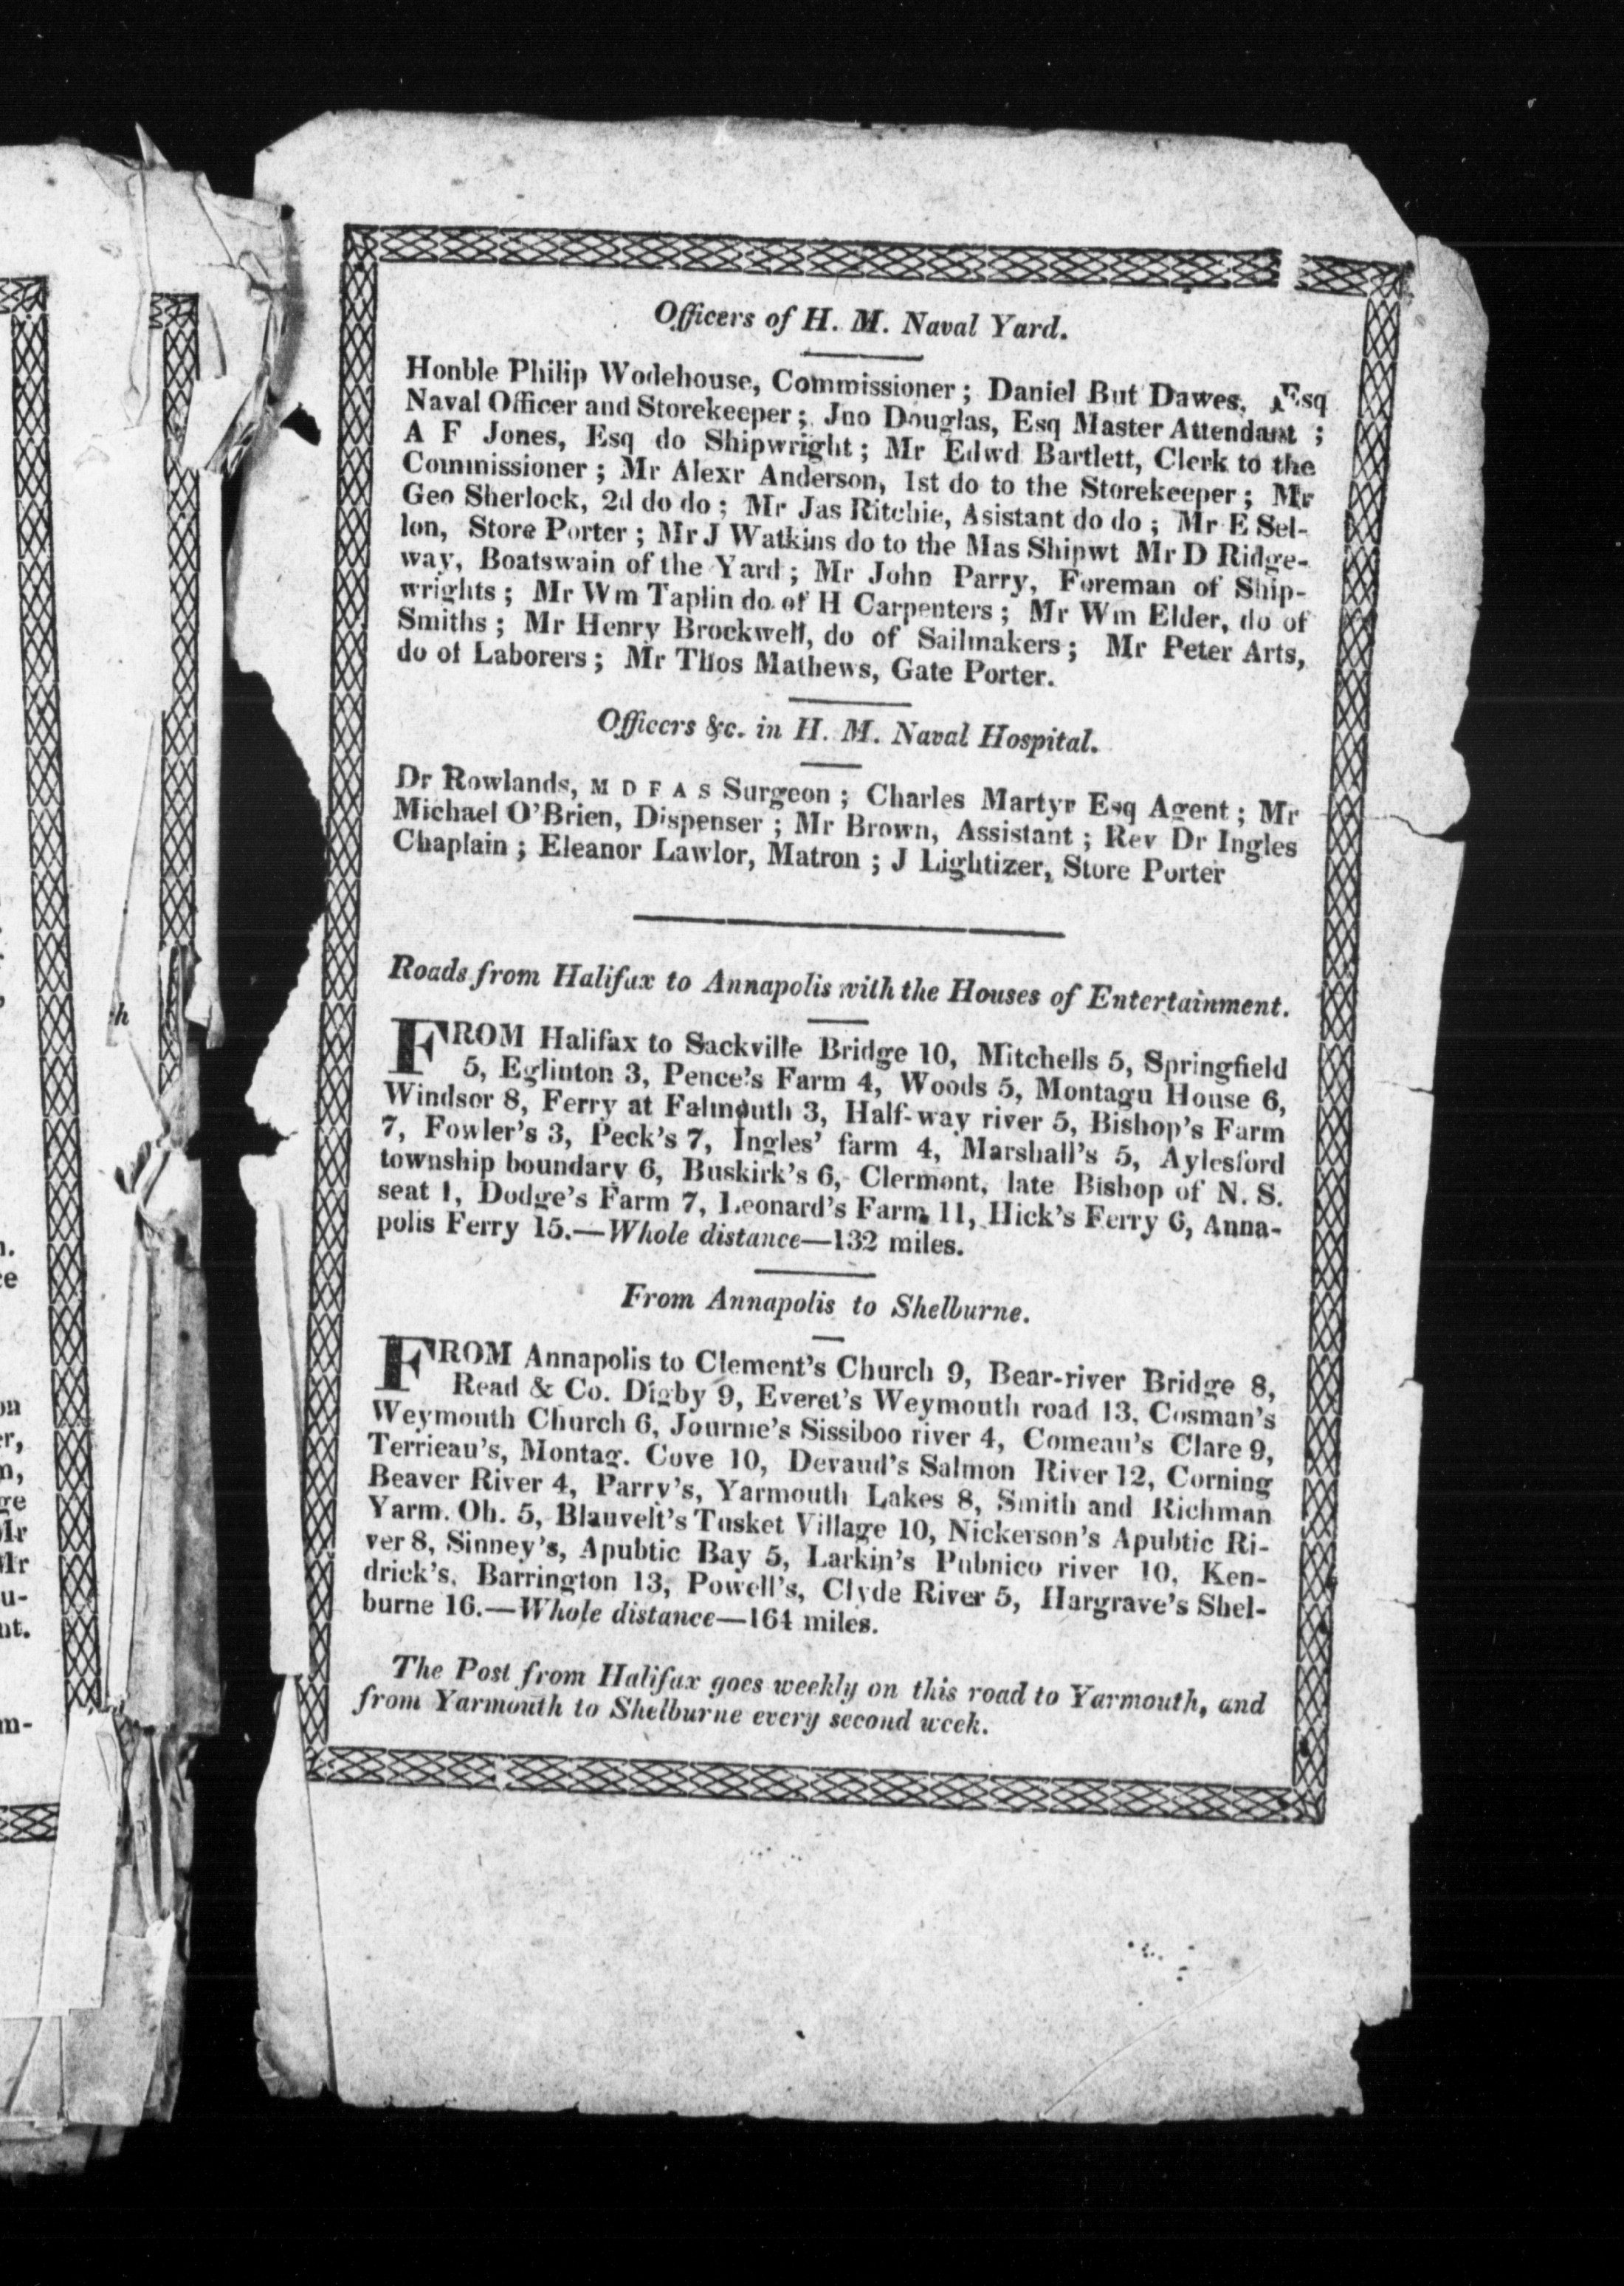 Officers of H. M. Naval Yard.
Honble Philip Wodehouse, Commissioner; Daniel But Dawes, Esq
Naval Officer and Storekeeper; Jno Douglas, Esq Master Attendant ;
A F Jones, Esq do Shipwright; Mr Edwd Bartlett, Clerk to the
Commissioner; Mr Alexr Anderson, 1st do to the Storekeeper; Mr
Geo Sherlock, 2d do do; Mr Jas Ritchie, Asistant do do; Mr E Sel-
lon, Store Porter; Mr J Watkins do to the Mas Shipwt Mr D Ridge-
way, Boatswain of the Yard; Mr John Parry, Foreman of Ship-
wrights; Mr Wm Taplin do of H Carpenters; Mr Wm Elder, do of
Smiths; Mr Henry Brockwell, do of Sailmakers; Mr Peter Arts,
do of Laborers; Mr Thos Mathews, Gate Porter.
Officers &c. in H. M. Naval Hospital.
Dr Rowlands, M D F A S Surgeon; Charles Martyr Esq Agent; Mr
Michael O'Brien, Dispenser; Mr Brown, Assistant; Rev Dr Ingles
Chaplain; Eleanor Lawlor, Matron; J Lightizer, Store Porter
Roads from Halifax to Annapolis with the Houses of Entertainment.
FROM Halifax to Sackville Bridge 10, Mitchells 5, Springfield
5, Eglinton 3, Pence's Farm 4, Woods 5, Montagu House 6,
Windsor 8, Ferry at Falmouth 3, Half-way river 5, Bishop's Farm
7, Fowler's 3, Peck's 7, Ingles' farm 4, Marshall's 5, Aylesford
township boundary 6, Buskirk's 6, Clermont, late Bishop of N. S.
seat 1, Dodge's Farm 7, Leonard's Farm 11, Hick's Ferry 6, Anna-
polis Ferry 15.—Whole distance—132 miles.
From Annapolis to Shelburne.
FROM Annapolis to Clement's Church 9, Bear-river Bridge 8,
Read & Co. Digby 9, Everet's Weymouth road 13, Cosman's
Weymouth Church 6, Journie's Sissiboo river 4, Comeau's Clare 9,
Terrieau's, Montag. Cove 10, Devaud's Salmon River 12, Corning
Beaver River 4, Parry's, Yarmouth Lakes 8, Smith and Richman
Yarm. Oh. 5, Blauvelt's Tusket Village 10, Nickerson's Apubtic Ri-
ver 8, Sinney's, Apubtic Bay 5, Larkin's Pubnico river 10, Ken-
drick's, Barrington 13, Powell's, Clyde River 5, Hargrave's Shel-
burne 16.—Whole distance—164 miles.
The Post from Halifax goes weekly on this road to Yarmouth, and
from Yarmouth to Shelburne every second week.